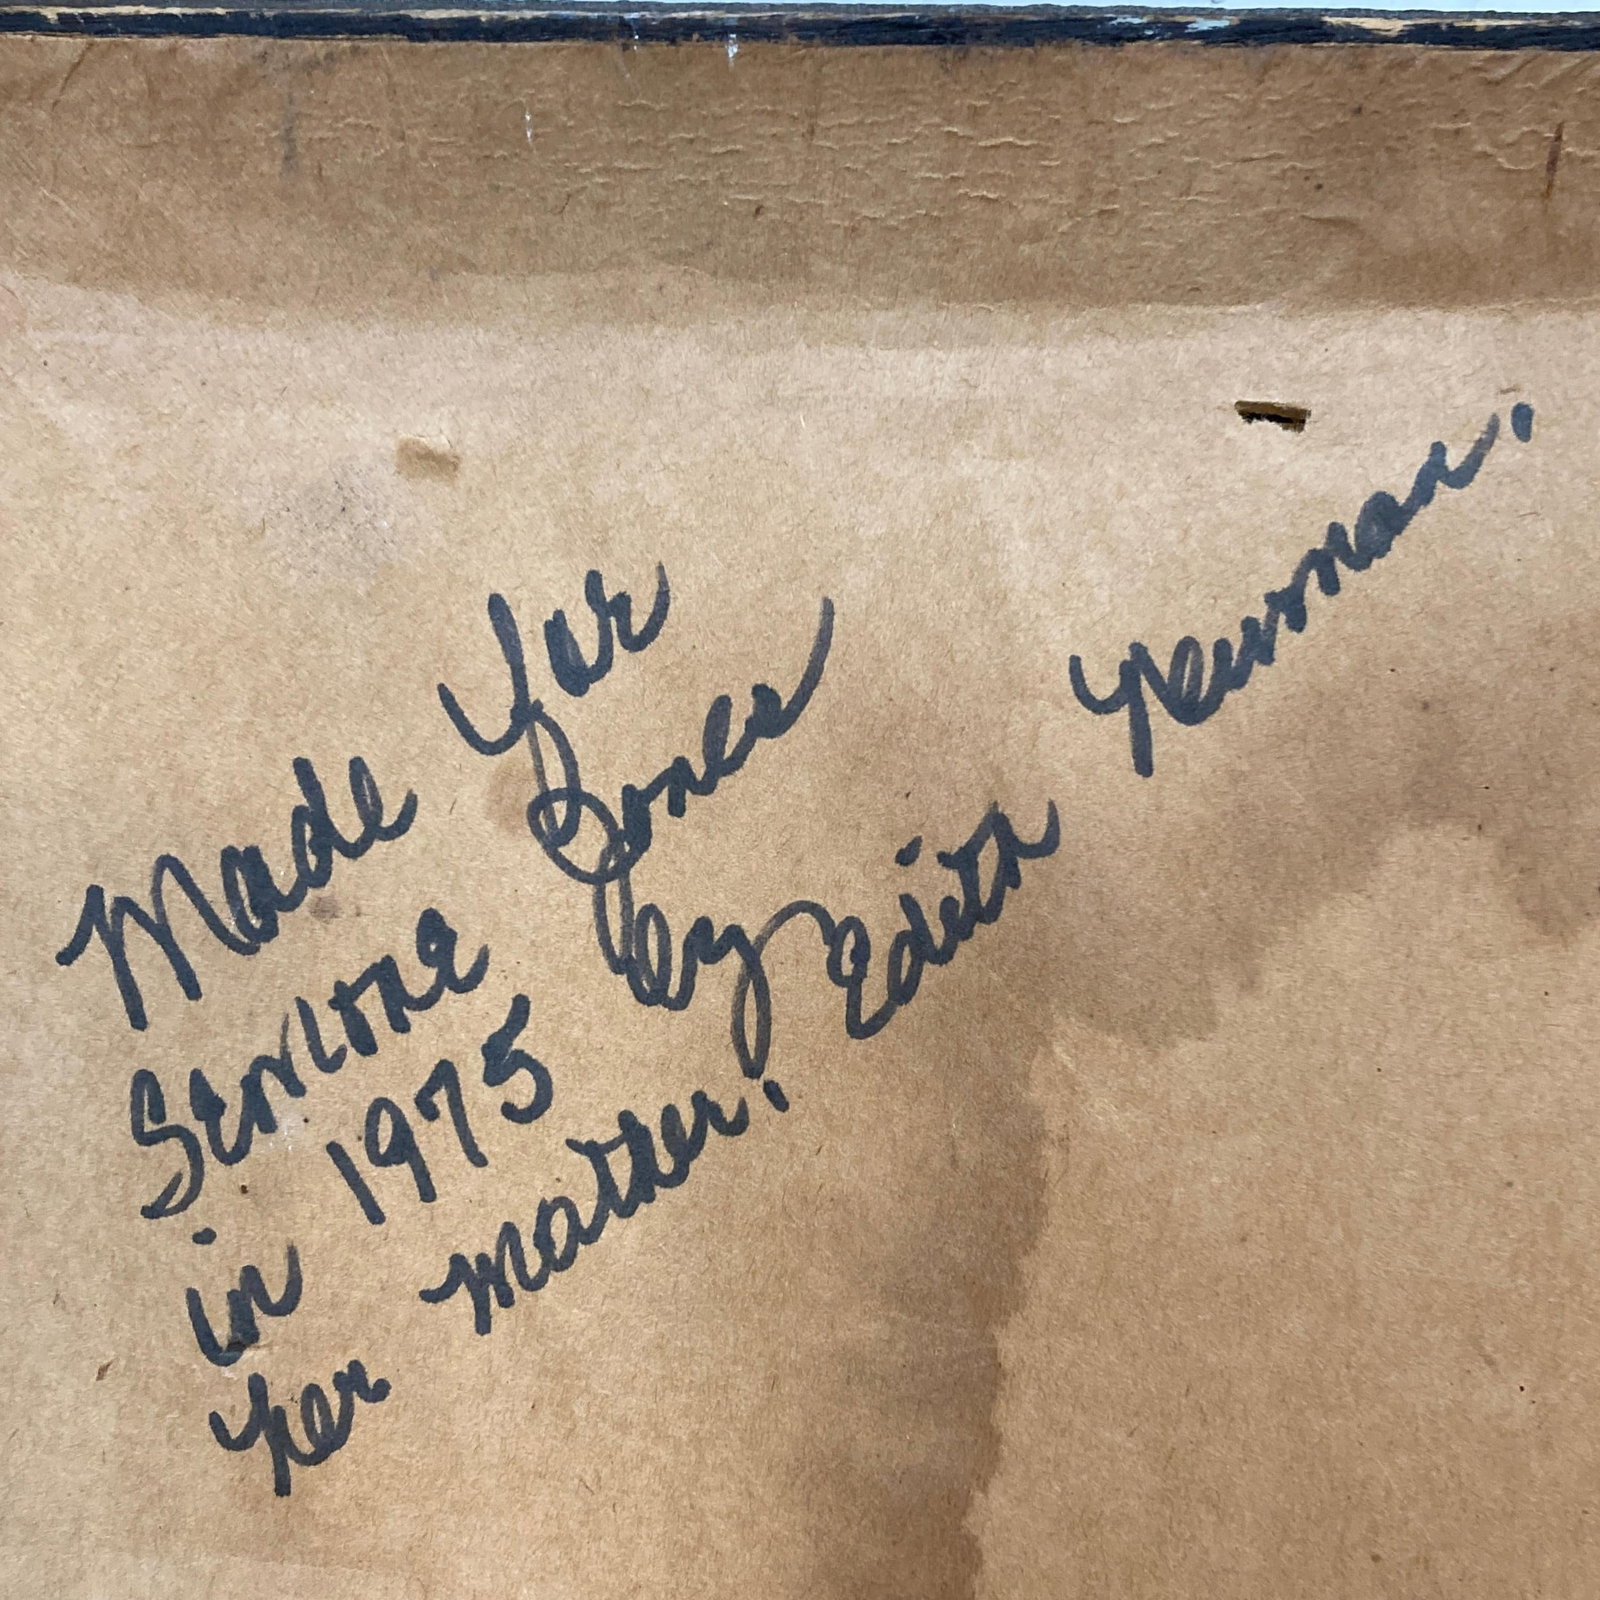 Made For
Jones
in 1975 by Edith Newman.
her mother.